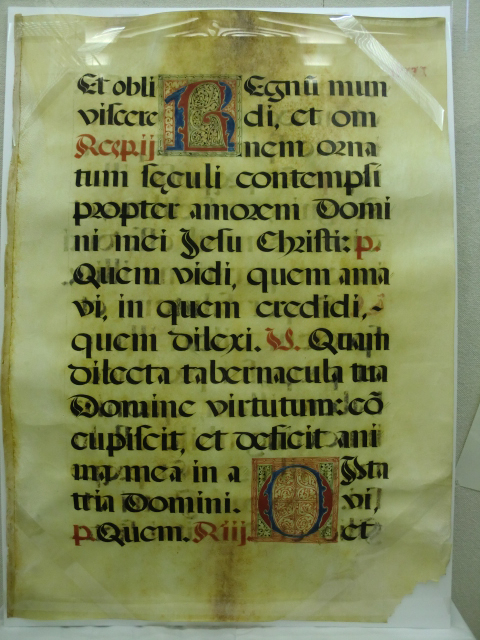 Et obli REgnū mun
viscere di, et om
Resp.ij nem orna
tum sęculi contempsi
propter amorem Domi
ni mei Jesu Christi: p.
Quem vidi, quem ama
vi, in quem credidi,
quem dilexi. V. Quam
dilecta tabernacula tua
Domine virtutum: cō
cupiscit, et deficit ani
ma mea in a O Ista
tria Domini. vi,
p. Quem. R iij. et